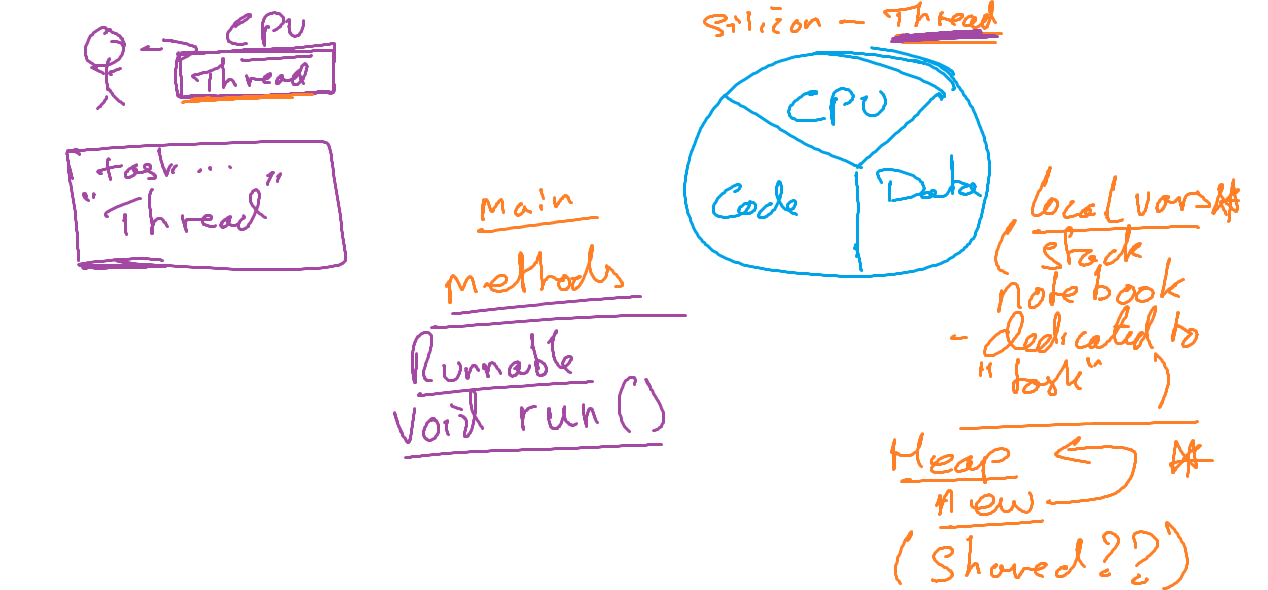 CPU
Thread
task...
"Thread"
Silicon - Thread
CPU
Code
Data
Main
methods
Runnable
void run()
local vars*
(stack
notebook
- dedicated to
"task" )
Heap *
new
(Shared??)